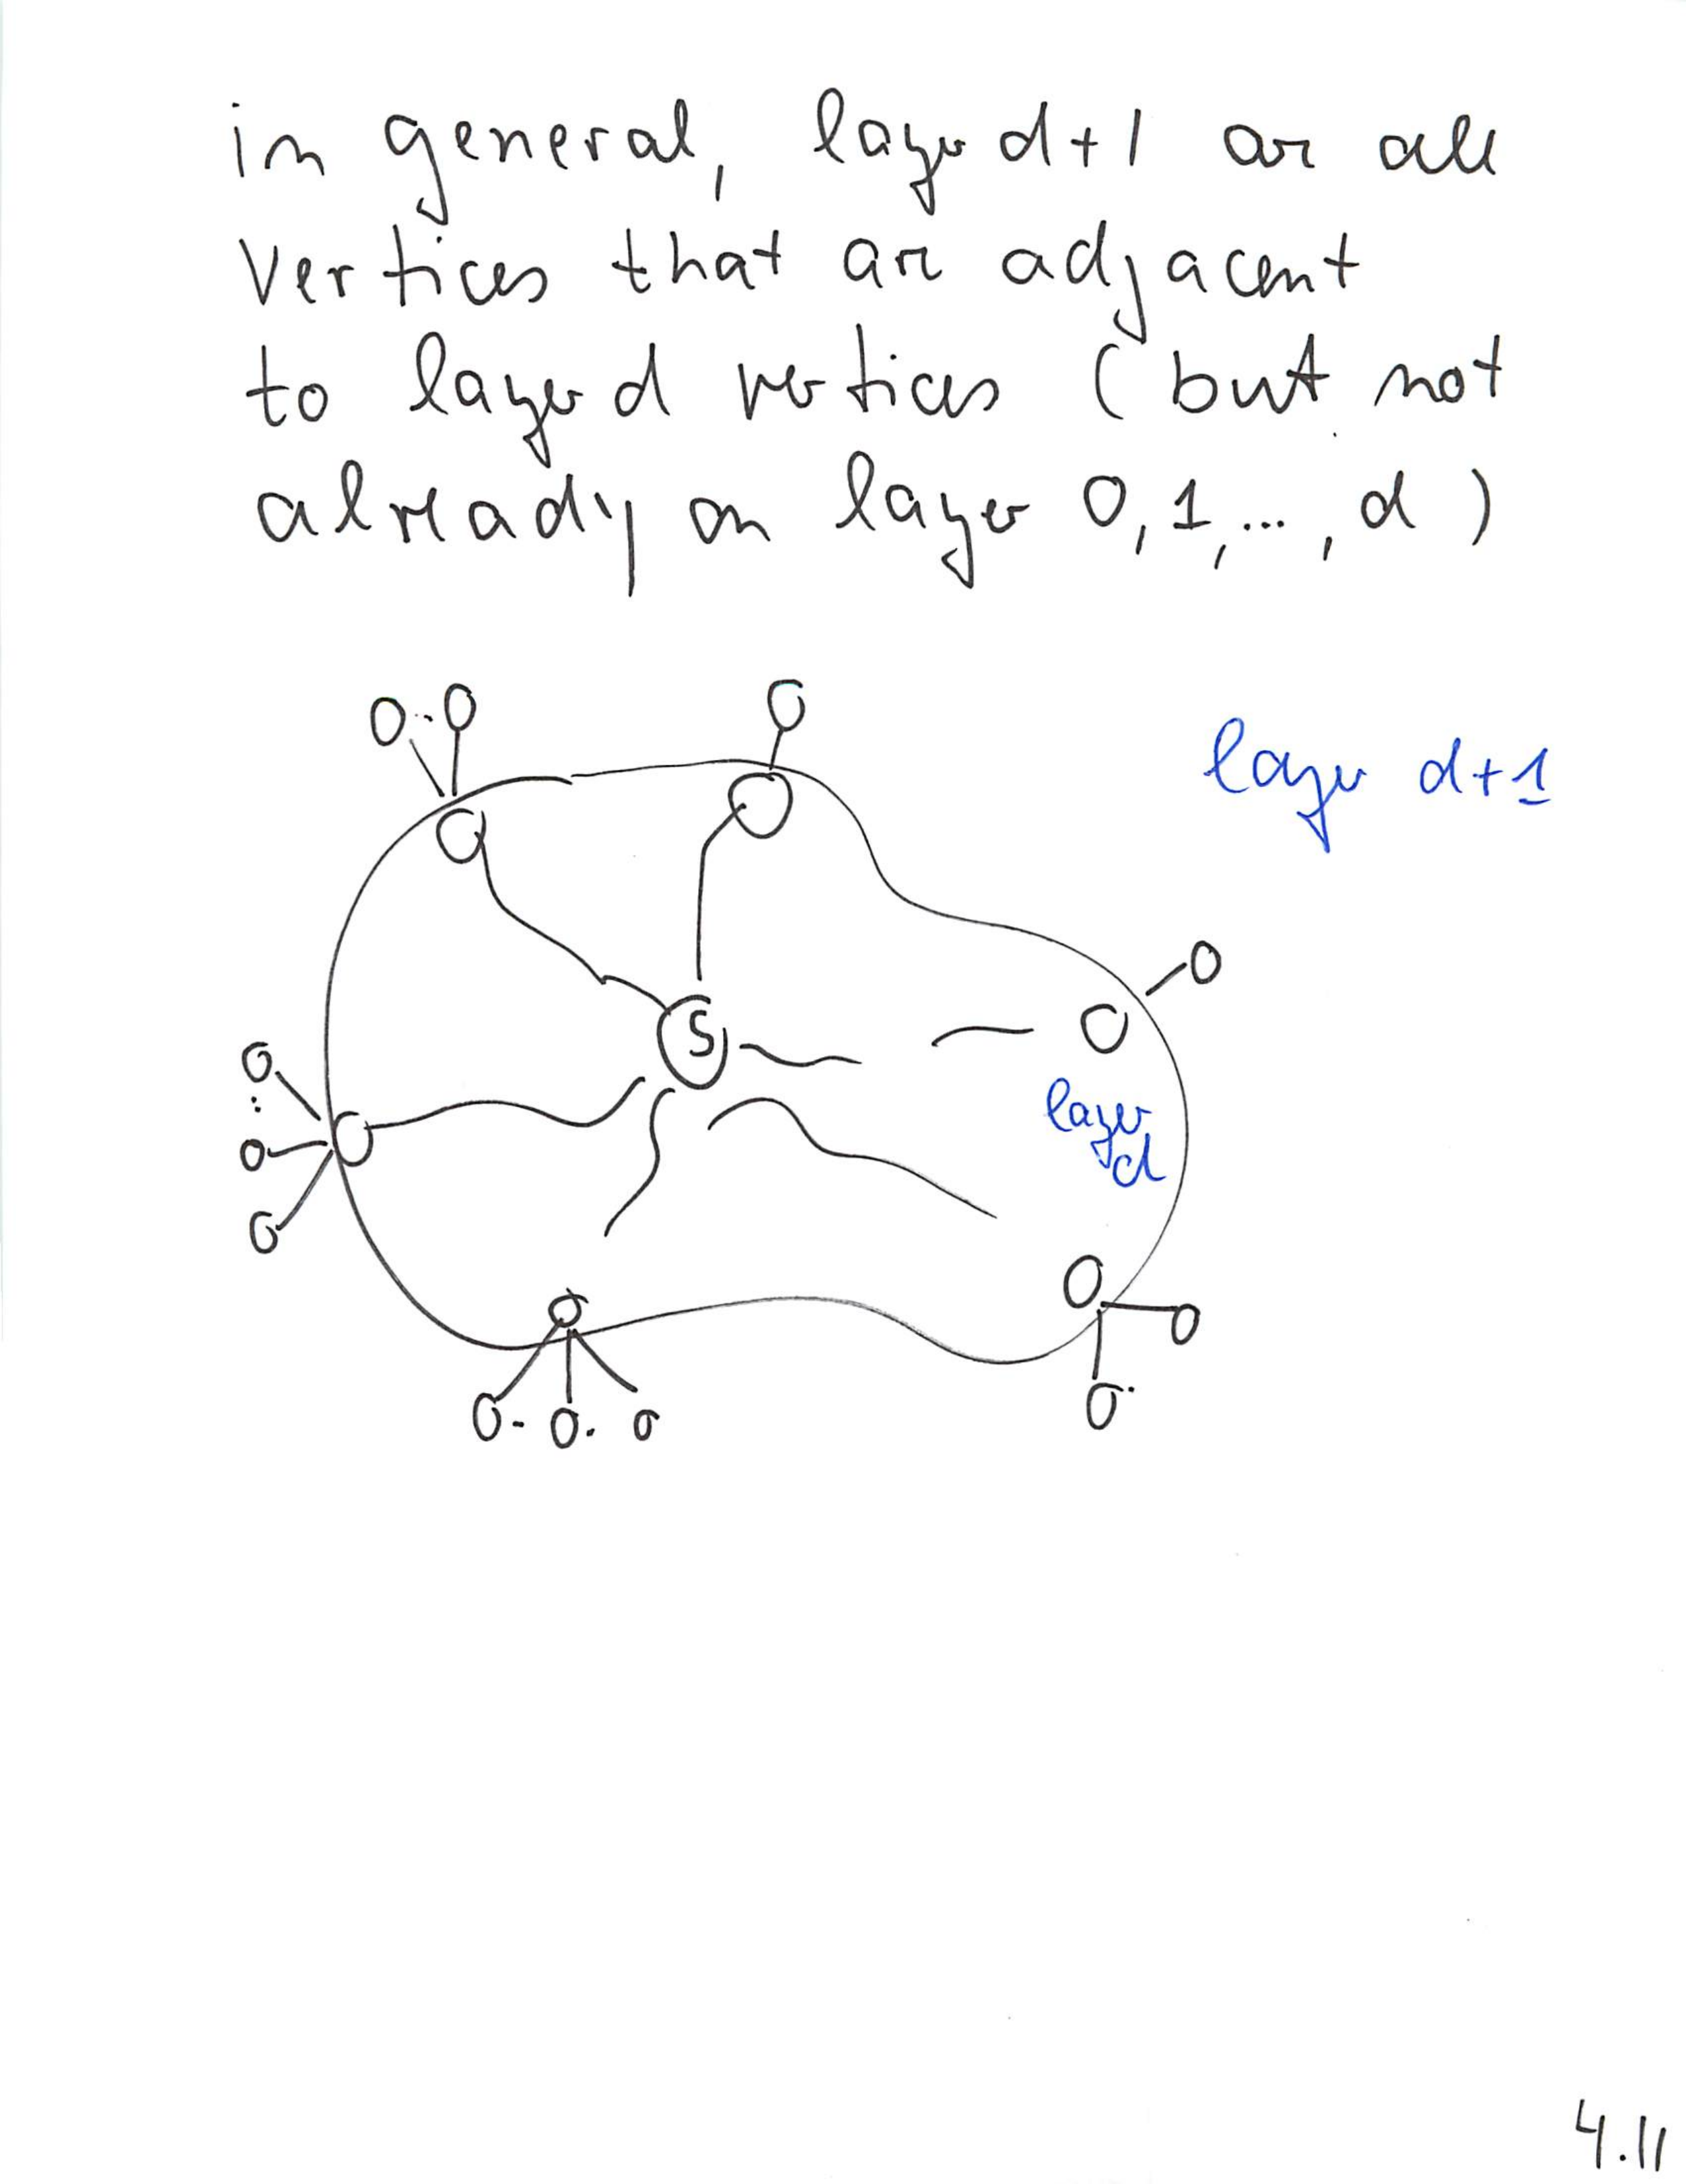 in general, layer d+1 are all
vertices that are adjacent
to layer d vertices (but not
already on layer 0,1,...,d)
layer d+1
S
layer
d
4.11